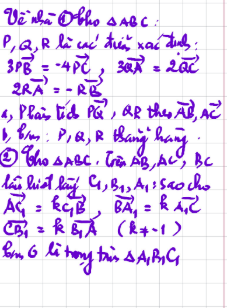 Về nhà ① Cho ΔABC:
P, Q, R là các điểm xác định:
3PB = -4PC, 3QA = 2QC
2RA = -RB
a, Phân tích PQ, QR theo AB, AC
b, Cm: P, Q, R thẳng hàng.
② Cho ΔABC. Trên AB, AC, BC
lần lượt lấy C₁, B₁, A₁ sao cho
AC₁ = kC₁B, BA₁ = kA₁C
CB₁ = kB₁A (k≠-1)
Cm G là trọng tâm ΔA₁B₁C₁